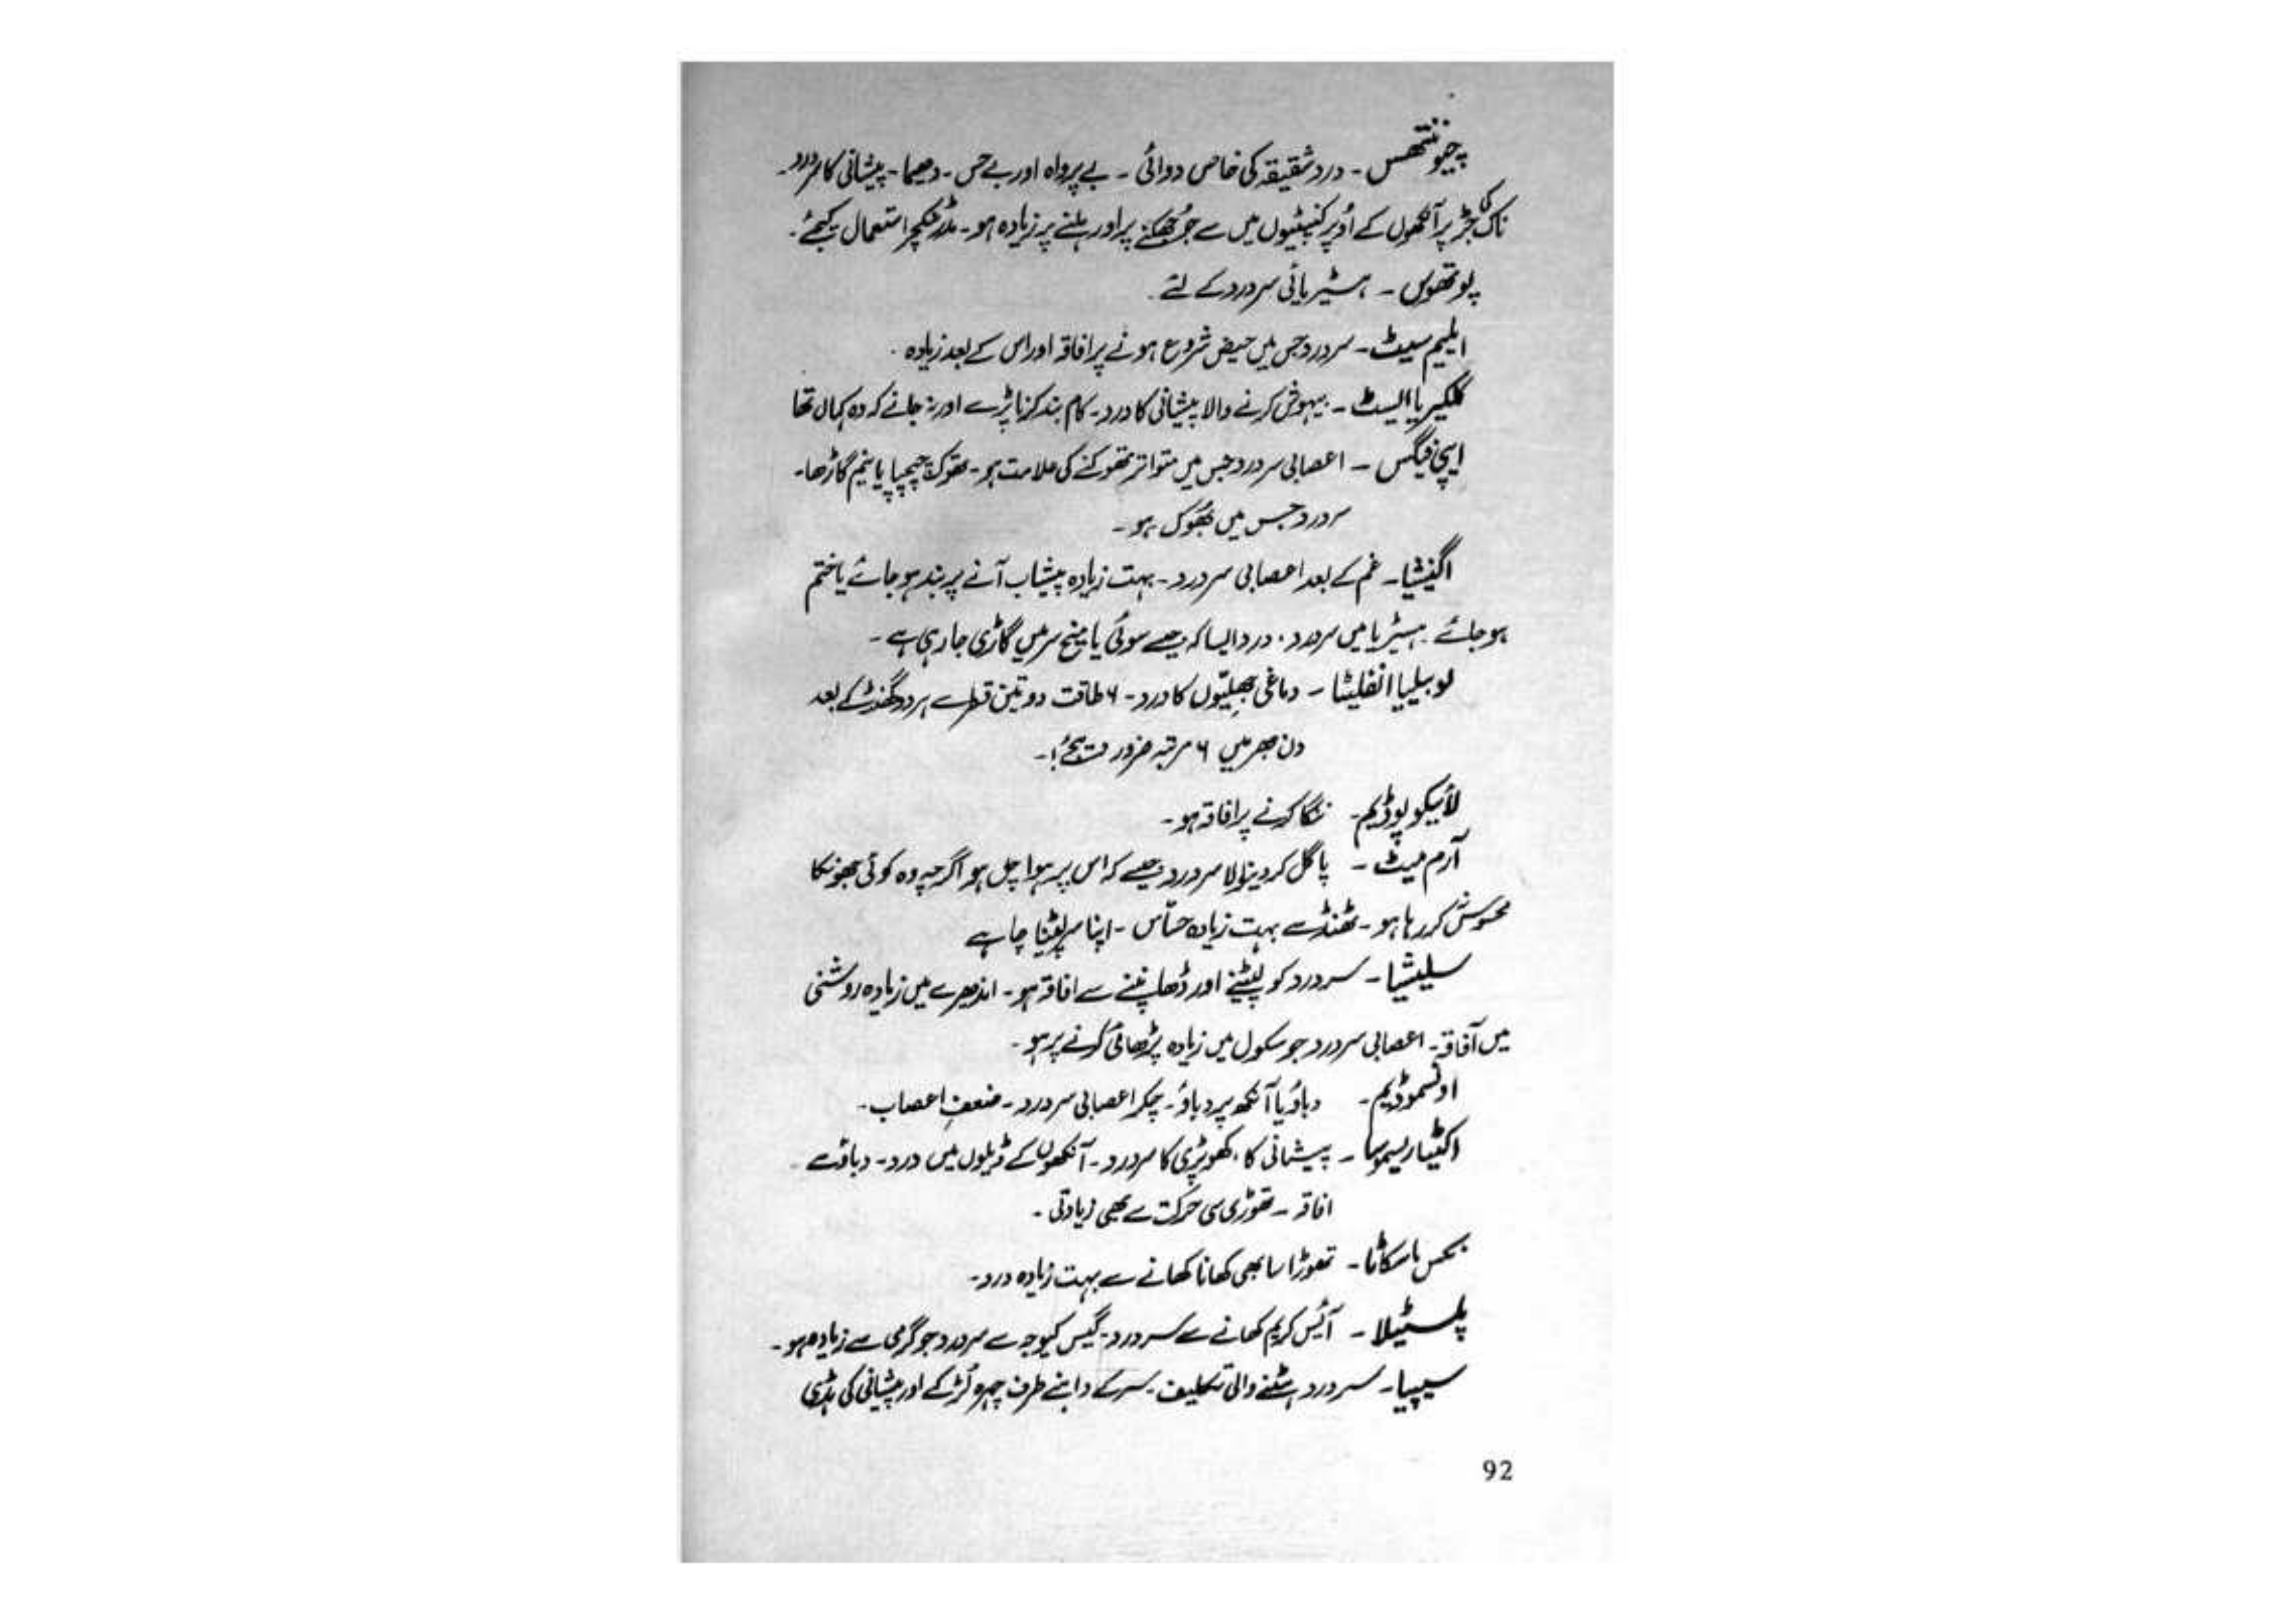 چیونتھس - درد شقیقہ کی خاص دوائی - بے پرواہ اور بے حس - دھیما - پیشانی کا سردرد -
ناک کی جڑ پر آنکھوں کے اُوپر کنپٹیوں میں سے جُو جھکنے پر اور ہلنے پر زیادہ ہو - مدر ٹنکچر استعمال کیجئے -
پوتھوس - ہسٹیریائی سردرد کے لئے -
ایلیم سیٹ - سردرد جس میں حیض شروع ہونے پر افاقہ اور اس کے بعد زیادہ -
کلکیریا ایسٹ - بیہوش کرنے والا پیشانی کا درد - کام بند کرنا پڑے اور نہ جانے کہ وہ کہاں تھا
ایپی فیگس - اعصابی سردرد جس میں متواتر تھوکنے کی علامت ہو - تھوک چپچپا یا نیم گاڑھا -
سردرد جس میں بھُوک ہو -
اگنیشیا - غم کے بعد اعصابی سردرد - بہت زیادہ پیشاب آنے پر بند ہو جائے یا ختم
ہو جائے - ہسٹیریا میں سردرد - درد ایسا کہ جیسے سوئی یا میخ سر میں گاڑی جا رہی ہے -
لوبیلیا انفلیٹا - دماغی جھلیّوں کا درد - ۶ طاقت دو تین قطرے ہر دو گھنٹے کے بعد
دن بھر میں ۶ مرتبہ ضرور دیجئے! -
لائیکوپوڈیم - ننگا کرنے پر افاقہ ہو -
آرم میٹ - پاگل کر دینے والا سردرد جیسے کہ اس پر ہوا چل ہو اگرچہ وہ کوئی جھونکا
محسوس نہ کر رہا ہو - ٹھنڈ سے بہت زیادہ حسّاس - اپنا سر لپیٹنا چاہے
سلیشیا - سردرد کو لپٹنے اور ڈھانپنے سے افاقہ ہو - اندھیرے میں زیادہ روشنی
میں آفاقہ - اعصابی سردرد جو سکول میں زیادہ پڑھائی کرنے پر ہو -
اونسموڈیم - دباؤ یا آنکھ پر دباؤ - چکر اعصابی سردرد - ضعفِ اعصاب -
اکٹیا ریسیموسا - پیشانی کا ، کھوپڑی کا سردرد - آنکھوں کے ڈیلوں میں درد - دباؤ سے
افاقہ - تھوڑی سی حرکت سے بھی زیادتی -
نکس ماسکاٹا - تھوڑا سا بھی کھانا کھانے سے بہت زیادہ درد -
پلسٹیلا - آئیس کریم کھانے سے سردرد - گیس کیوجہ سے سردرد جو گرمی سے زیادہ ہو -
سیپیا - سردرد ہٹنے والی تکلیف - سر کے داہنے طرف چہرہ اور پیشانی کی ہڈی
92